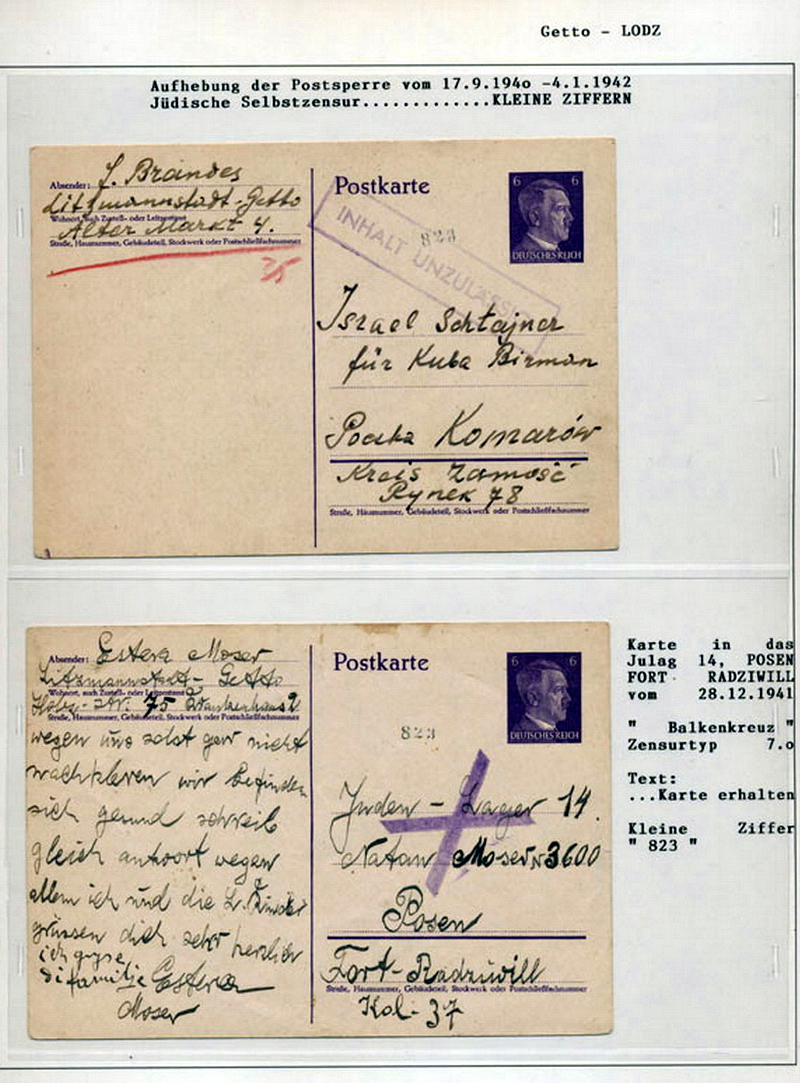 Getto - LODZ
Aufhebung der Postsperre vom 17.9.194o -4.1.1942
Jüdische Selbstzensur.............KLEINE ZIFFERN
Absender: J. Brandes
Litzmannstadt-Getto
Wohnort, auch Zustell- oder Leitpostamt
Alter Markt 4.
Straße, Hausnummer, Gebäudeteil, Stockwerk oder Postschließfachnummer
Postkarte
6 6
DEUTSCHES REICH
823
INHALT UNZULÄSSIG
Israel Schtajner
für Kuba Birman
Poczta Komarów
Kreis Zamość
Rynek 78
Straße, Hausnummer, Gebäudeteil, Stockwerk oder Postschließfachnummer
Absender: Estera Moser
Litzmannstadt- Getto
Wohnort, auch Zustell- oder Leitpostamt
75
Straße, Hausnummer, Gebäudeteil, Stockwerk oder Postschließfachnummer
wegen uns solst gar nicht
wir befinden
sich gesund schreib
gleich antwort wegen
allem ich und die L. Kinder
grüssen dich sehr herzlich
ich
di familie Estera
Moser
Postkarte
6 6
DEUTSCHES REICH
823
Juden - Lager 14.
Natan Moser N 3600
Posen
Fort- Radziwill
Straße, Hausnummer, Gebäudeteil, Stockwerk oder Postschließfachnummer
Kol- 37
Karte in das
Julag 14, POSEN
FORT RADZIWILL
vom 28.12.1941
" Balkenkreuz "
Zensurtyp 7.o
Text:
...Karte erhalten
Kleine Ziffer
" 823 "